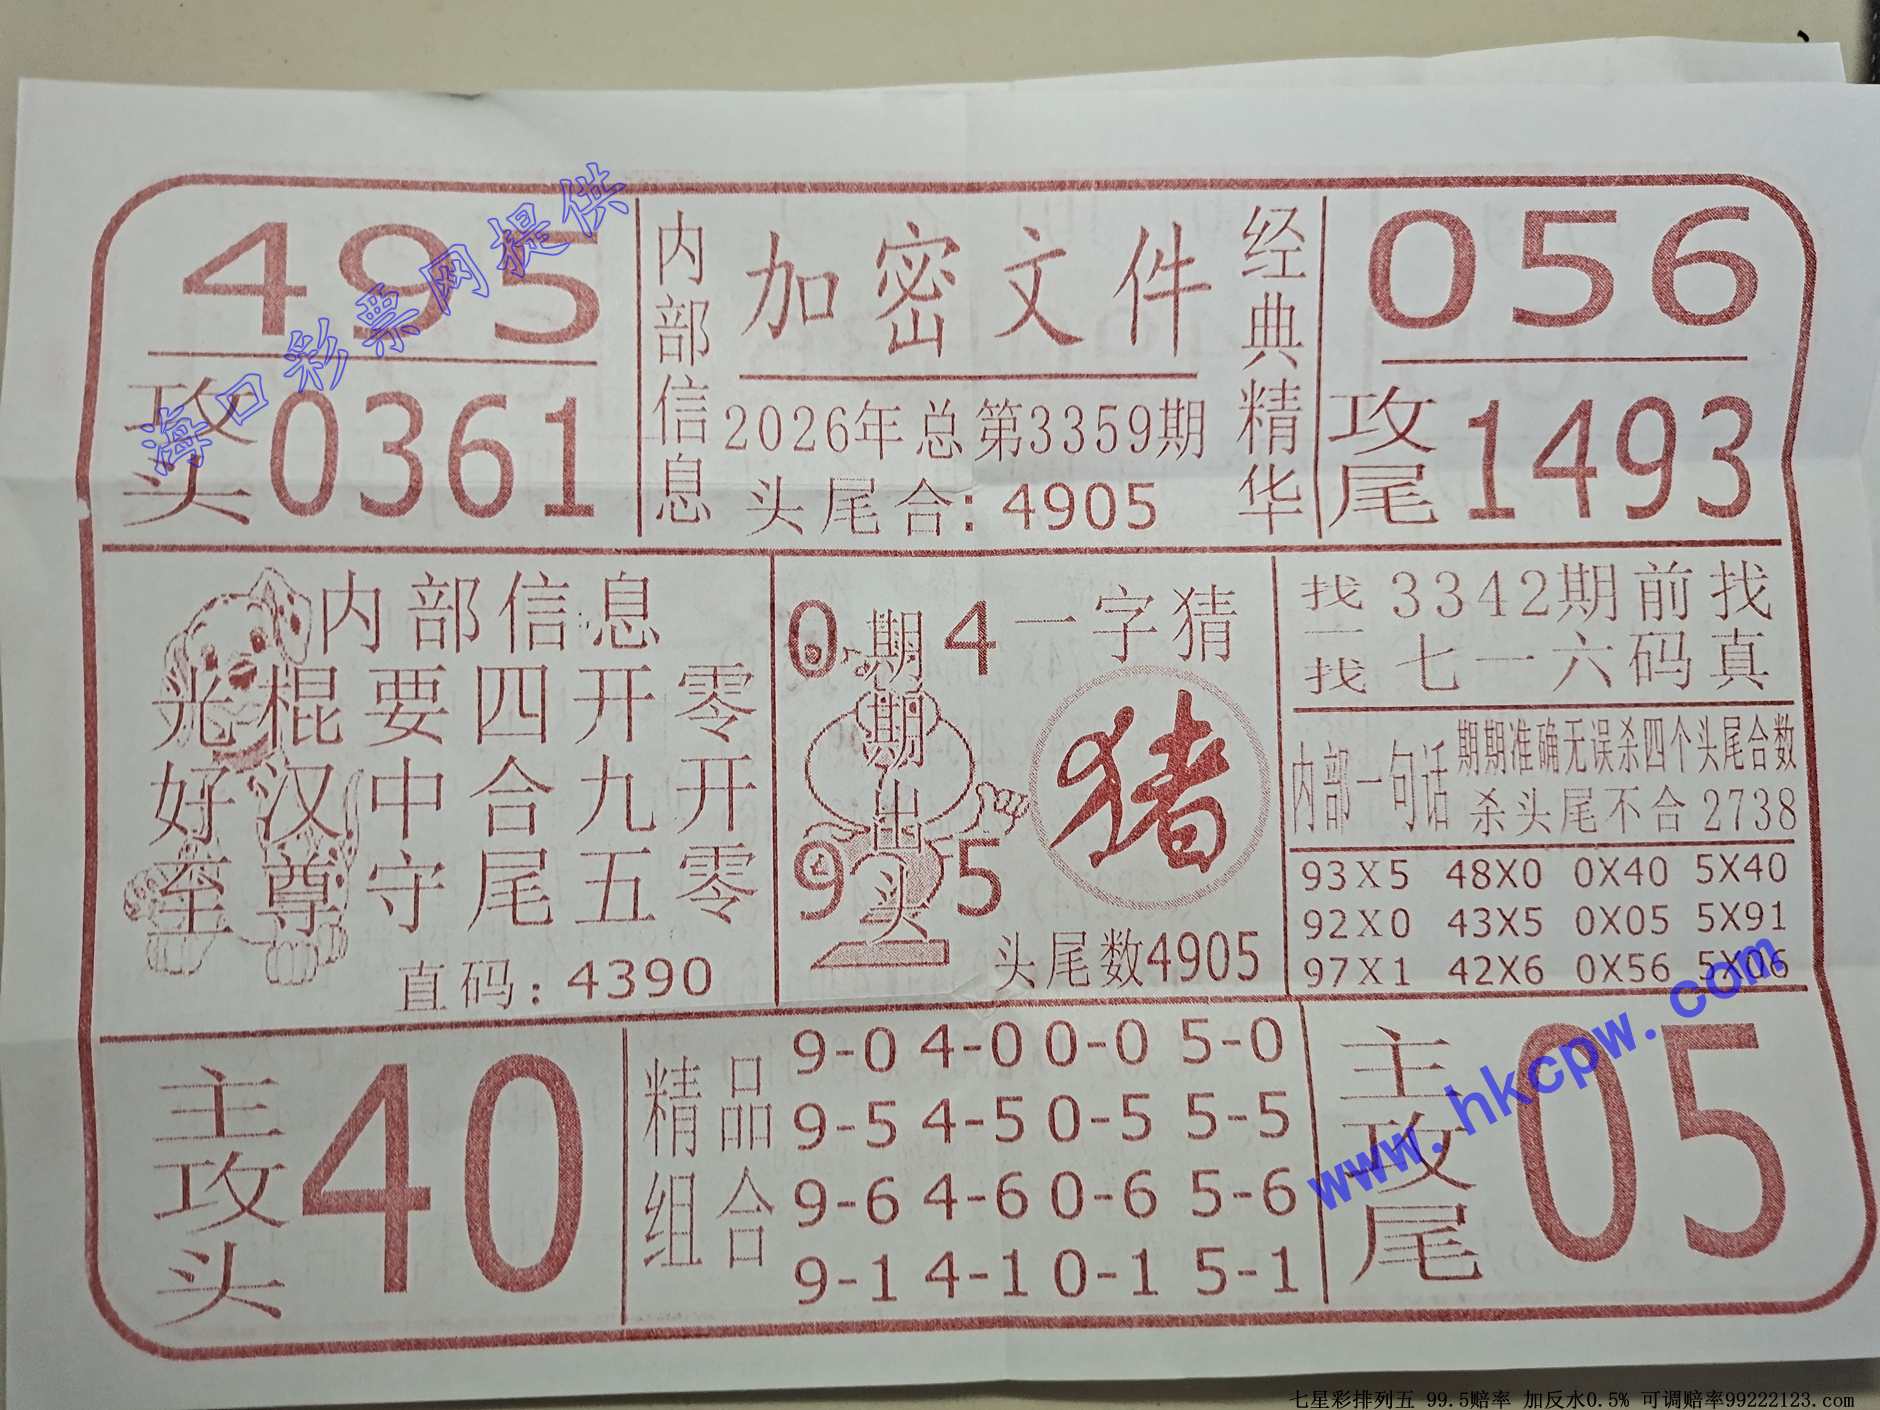 495
攻头 0361
内部信息
加密文件
2026年总第3359期
头尾合:4905
经典精华
056
攻尾 1493
内部信息
光棍要四开零
好汉中合九开
至尊守尾五零
直码:4390
0 4
9 5
期期出头
一字猜
猪
头尾数4905
找一找
3342期前找
七一六码真
内部一句话
期期准确无误杀四个头尾合数
杀头尾不合2738
93X5 48X0 0X40 5X40
92X0 43X5 0X05 5X91
97X1 42X6 0X56 5X06
主攻头 40
精品组合
9-0 4-0 0-0 5-0
9-5 4-5 0-5 5-5
9-6 4-6 0-6 5-6
9-1 4-1 0-1 5-1
主攻尾 05
海口彩票网提供
www.hkcpw.com
七星彩排列五 99.5赔率 加反水0.5% 可调赔率99222123.com